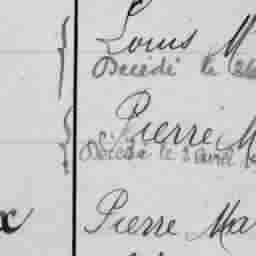 Louis M
Décédé le
Pierre M
Décédé le 2 avril
x Pierre Ma